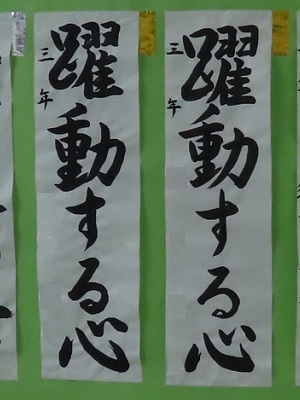 躍動する心
三年
躍動する心
三年